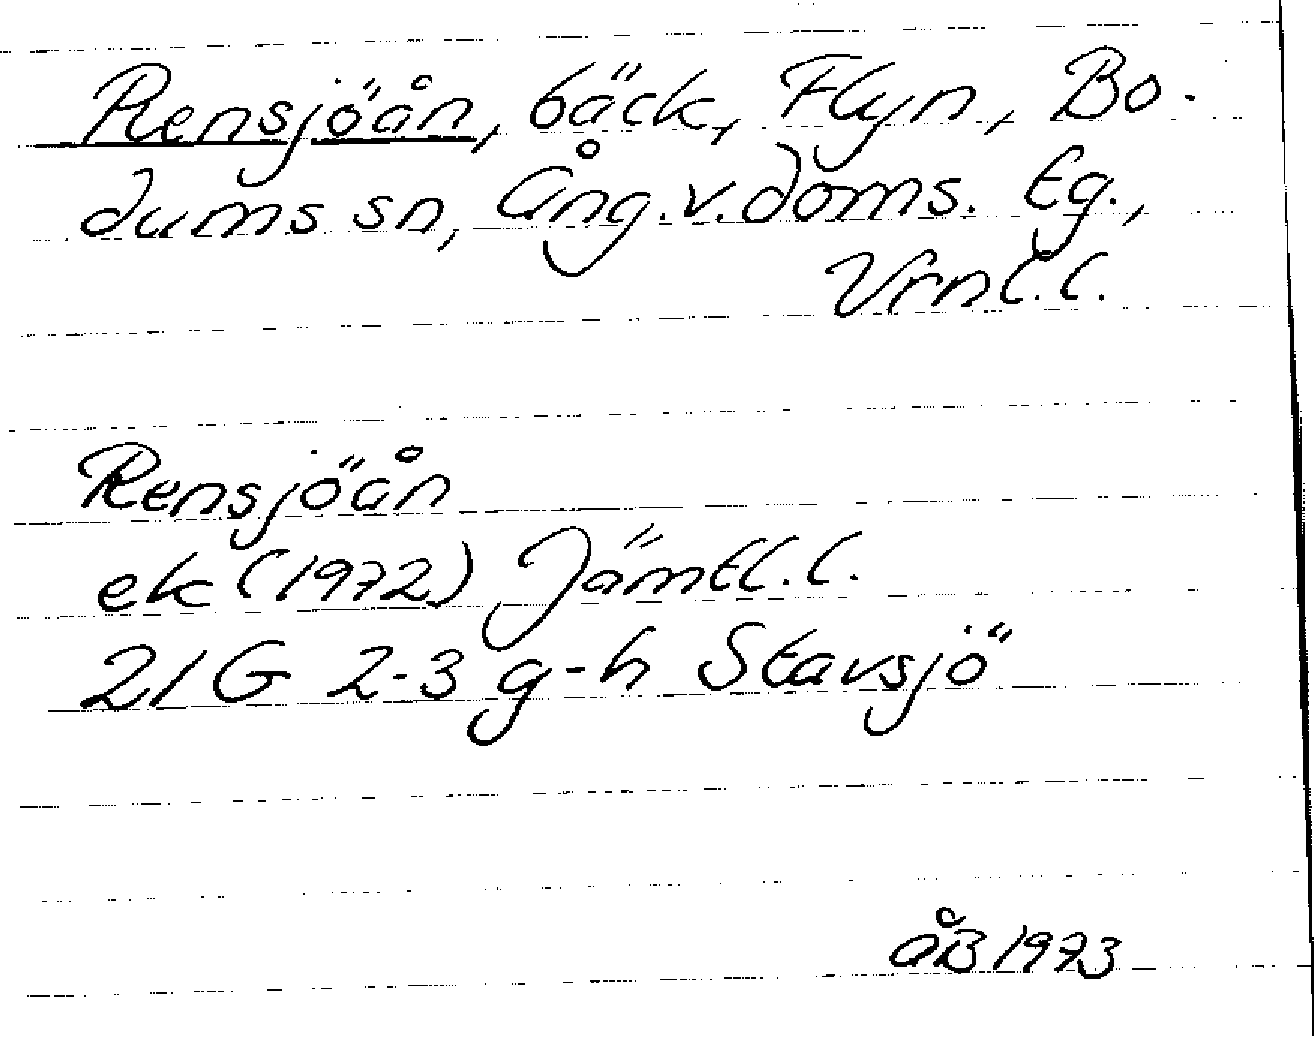 Rensjöån, bäck, Flyn, Bo-
dums sn, Ång.v.doms. Eg.,
Vrnl.l.
Rensjöån
ek (1972) Jämtl.l.
21G 2-3 g-h Stavsjö
åB 1973